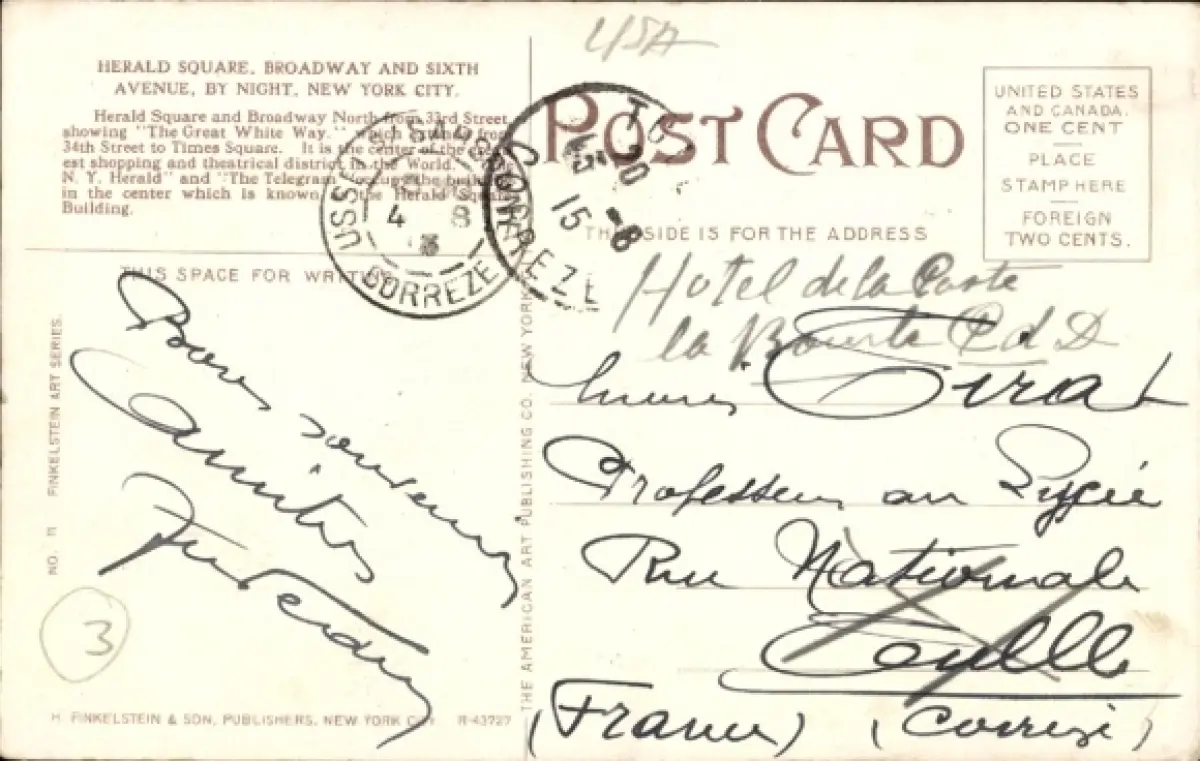 USA
HERALD SQUARE, BROADWAY AND SIXTH
AVENUE, BY NIGHT, NEW YORK CITY.
Herald Square and Broadway North from 33rd Street
showing "The Great White Way."
34th Street to Times Square. It is the center of the
est shopping and theatrical district in the World.
N. Y. Herald" and "The Telegram" occupy the
in the center which is known the Herald Square
Building.
POST CARD
THIS SIDE IS FOR THE ADDRESS
UNITED STATES
AND CANADA.
ONE CENT
PLACE
STAMP HERE
FOREIGN
TWO CENTS.
USSEL
CORREZE
4 8
CORREZE
15 - 8
THIS SPACE FOR WRITING
Bons souvenirs
Amitiés
Hotel de la Poste
la Bourboule P d D
Professeur au Lycée
Rue Nationale
Tulle
(France) (Corrèze)
NO. 11 FINKELSTEIN ART SERIES.
THE AMERICAN ART PUBLISHING CO. NEW YORK
3
H. FINKELSTEIN & SON, PUBLISHERS, NEW YORK CITY R-43727